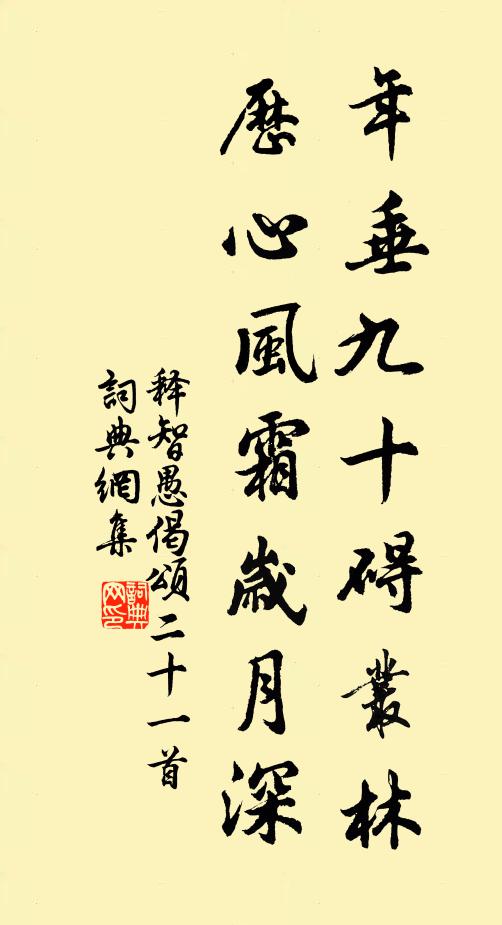 年垂九十碍叢林
歷心風霜歲月深
释智愚偈頌二十一首
詞典網集
詞典
网印